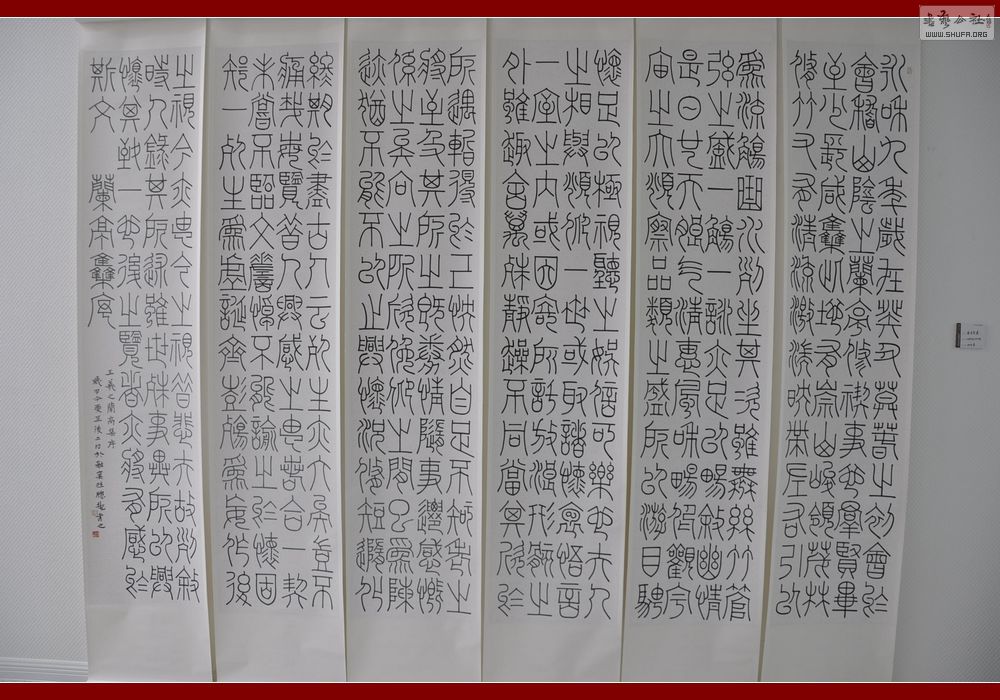 永和九年歲在癸丑莫萅之初會於
會稽山陰之蘭亭修禊事也群賢畢
至少長咸集此地有崇山峻領茂林
修竹又有清流激湍映帶左右引以
為流觴曲水列坐其次雖無絲竹管
弦之盛一觴一詠亦足以暢敘幽情
是日也天朗氣清惠風和暢仰觀宇
宙之大頫察品類之盛所以游目騁
懷足以極視聽之娛信可樂也夫人
之相與頫仰一世或取諸懷抱悟言
一室之內或因寄所託放浪形骸之
外雖趣舍萬殊靜躁不同當其欣於
所遇暫得於己快然自足不知老之
將至及其所之既倦情隨事遷感慨
係之矣向之所欣俛仰之間已為陳
迹猶不能不以之興懷況修短隨化
終期於盡古人云死生亦大矣豈不
痛哉每覽昔人興感之由若合一契
未嘗不臨文嗟悼不能喻之於懷固
知一死生為虛誕齊彭殤為妄作後
之視今亦由今之視昔悲夫故列敘
時人錄其所述雖世殊事異所以興
懷其致一也後之覽者亦將有感於
斯文 蘭亭集序
王羲之蘭亭集序
書藝公社
WWW.SHUFA.ORG